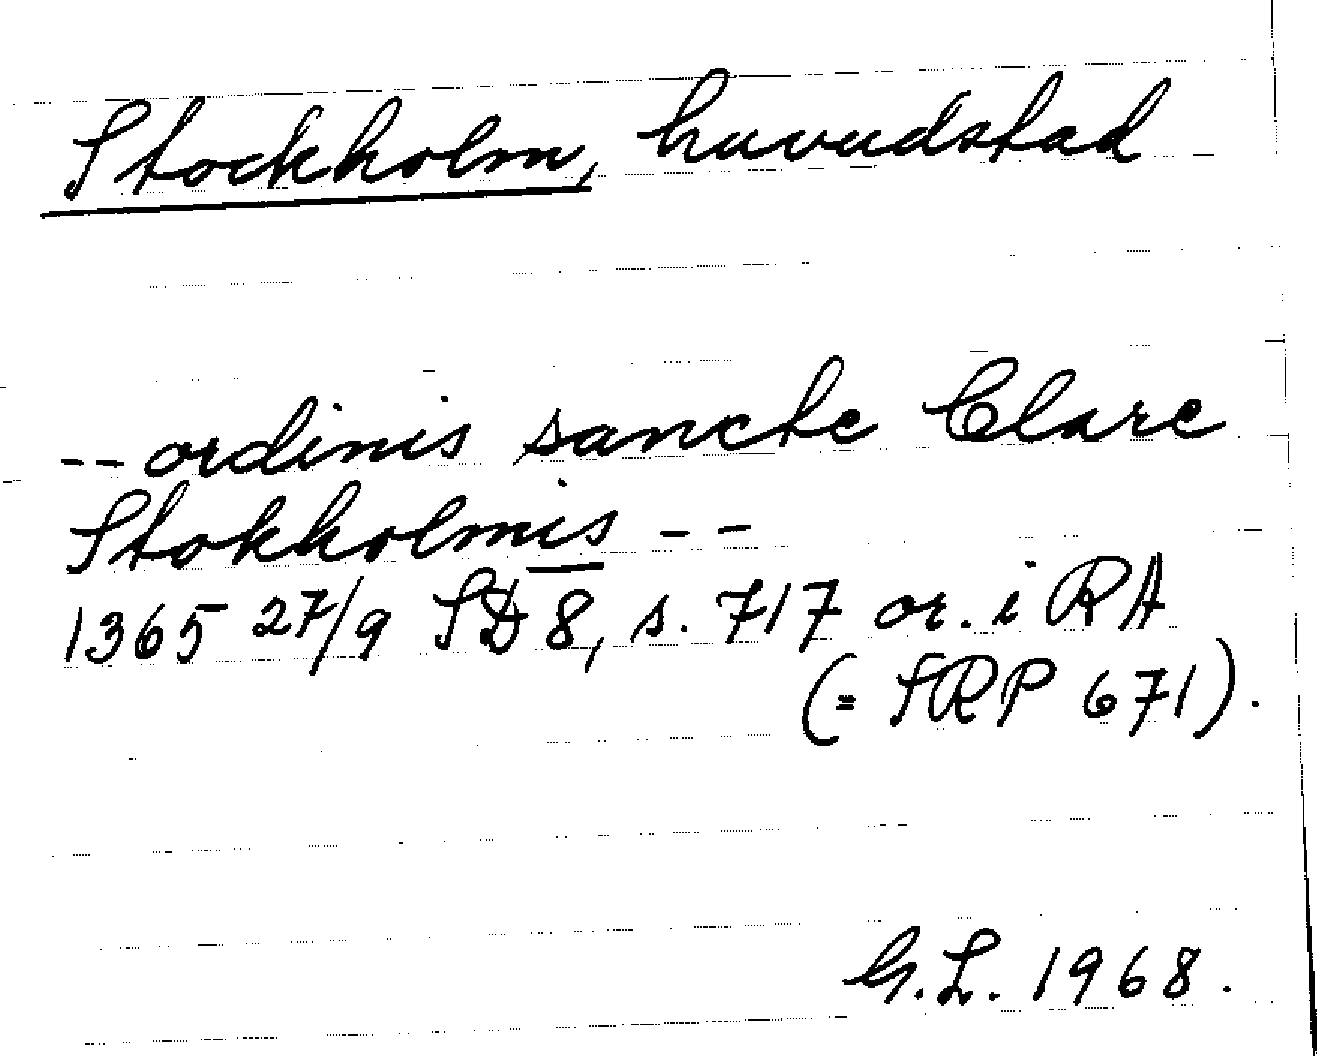 Stockholm, huvudstad
-- ordinis sancte Clare
Stokholmis --
1365 27/9 SD 8, s. 717 or. i RA
(= SRP 671).
G.L. 1968.